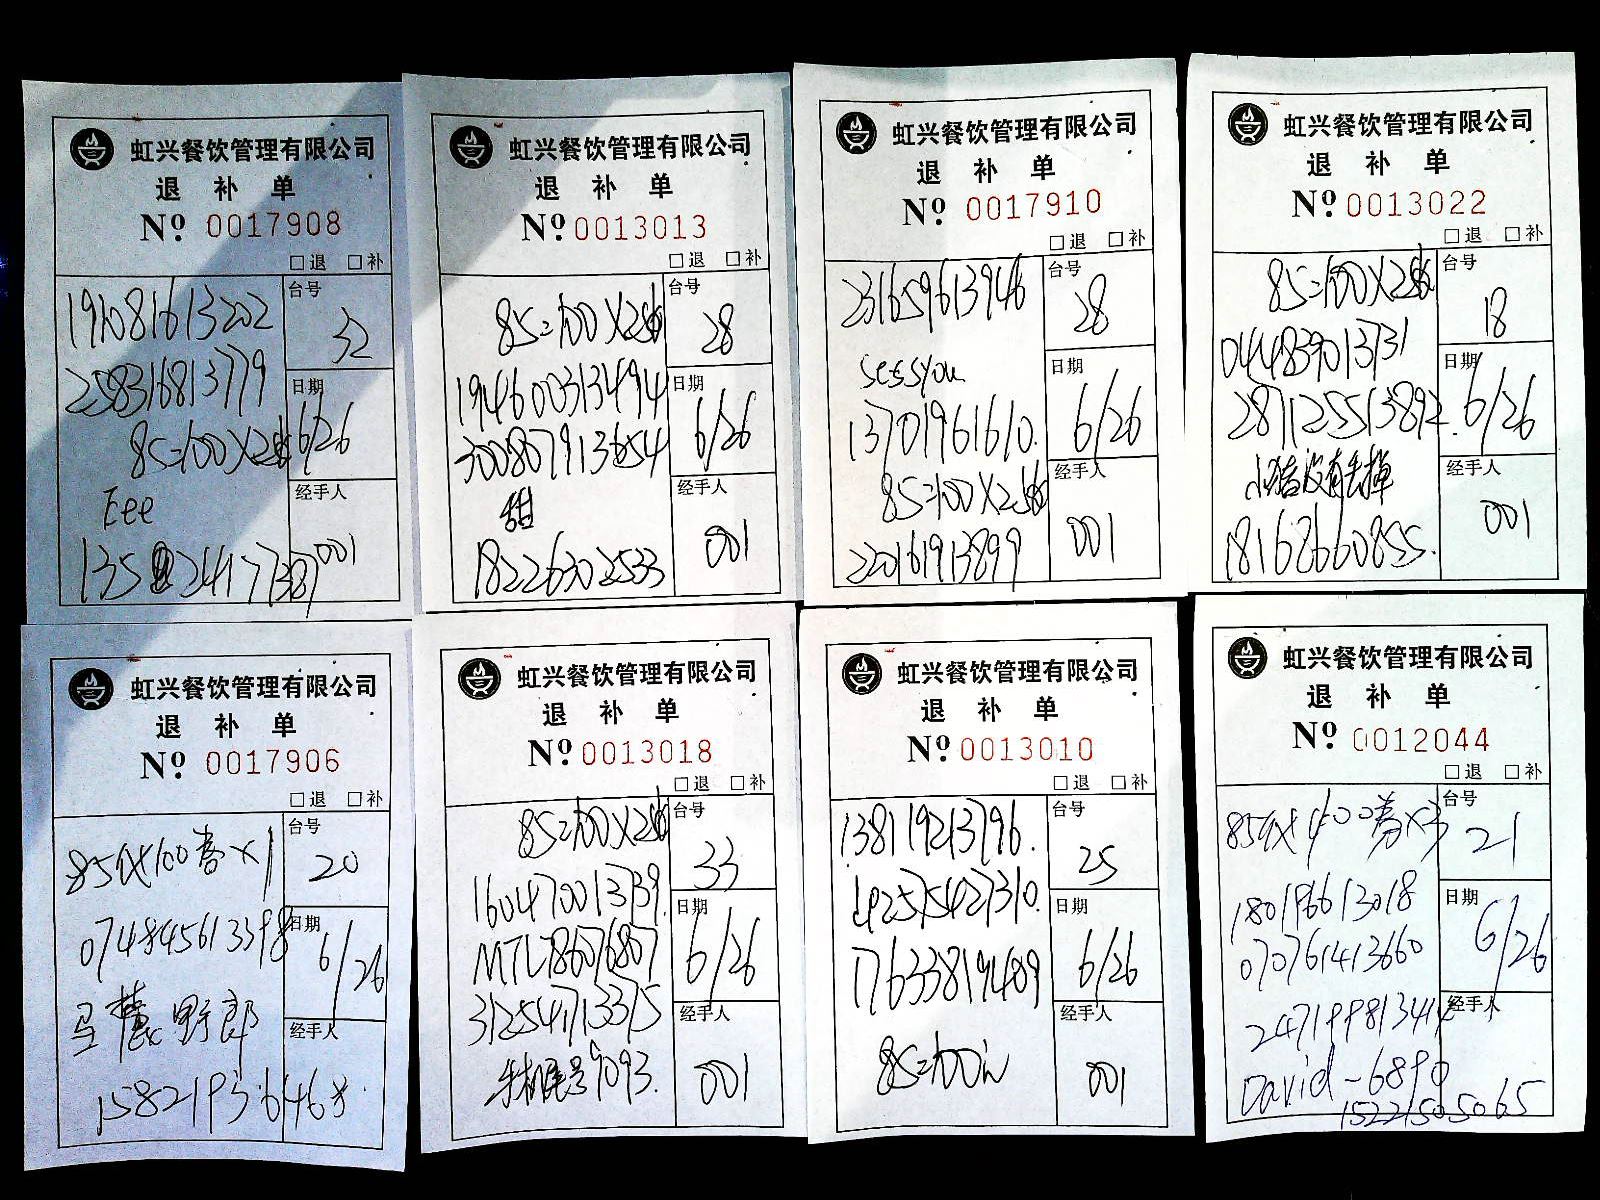 虹兴餐饮管理有限公司
退 补 单
Nº 0017908
□退 □补
191081613202
台号
32
258316813779
日期
6/26
85=100X2
Eee
经手人
001
虹兴餐饮管理有限公司
退 补 单
Nº 0013013
□退 □补
85=100X2
台号
28
194600313494
日期
6/26
300807913654
甜
经手人
001
18226302533
虹兴餐饮管理有限公司
退 补 单
Nº 0017910
□退 □补
231659613946
台号
28
sessyou
日期
6/26
13701961610.
85=100X2
经手人
001
220161913899
虹兴餐饮管理有限公司
退 补 单
Nº 0013022
□退 □补
85=100X2
台号
18
044839013731
日期
6/26
287125513892.
小猪没有去掉
经手人
001
18168660855.
虹兴餐饮管理有限公司
退 补 单
Nº 0017906
□退 □补
85代100券×1
台号
20
日期
6/26
野郎
经手人
虹兴餐饮管理有限公司
退 补 单
Nº 0013018
□退 □补
85=100X2
台号
33
160470013739.
日期
6/26
MTL78676807
312541713375
经手人
001
手机尾号9093.
虹兴餐饮管理有限公司
退 补 单
Nº 0013010
□退 □补
138119213796.
台号
25
日期
6/26
17633819489
85=100
经手人
001
虹兴餐饮管理有限公司
退 补 单
Nº 0012044
□退 □补
台号
21
180196613018
日期
6/26
070761413660
经手人
David-6890
15221505065